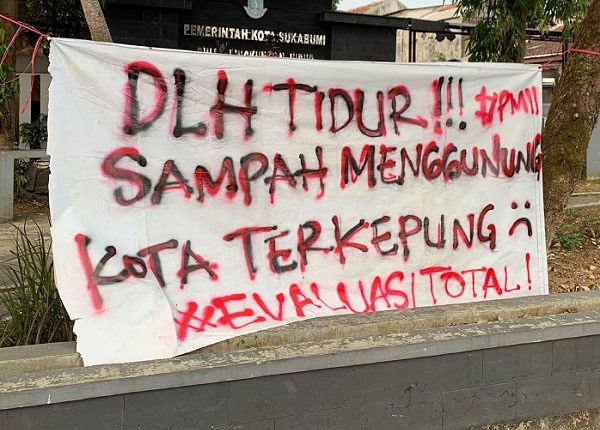 PEMERINTAH KOTA SUKABUMI
DLH TIDUR!!! #PMII
SAMPAH MENGGUNUNG
KOTA TERKEPUNG :(
#EVALUASI TOTAL!